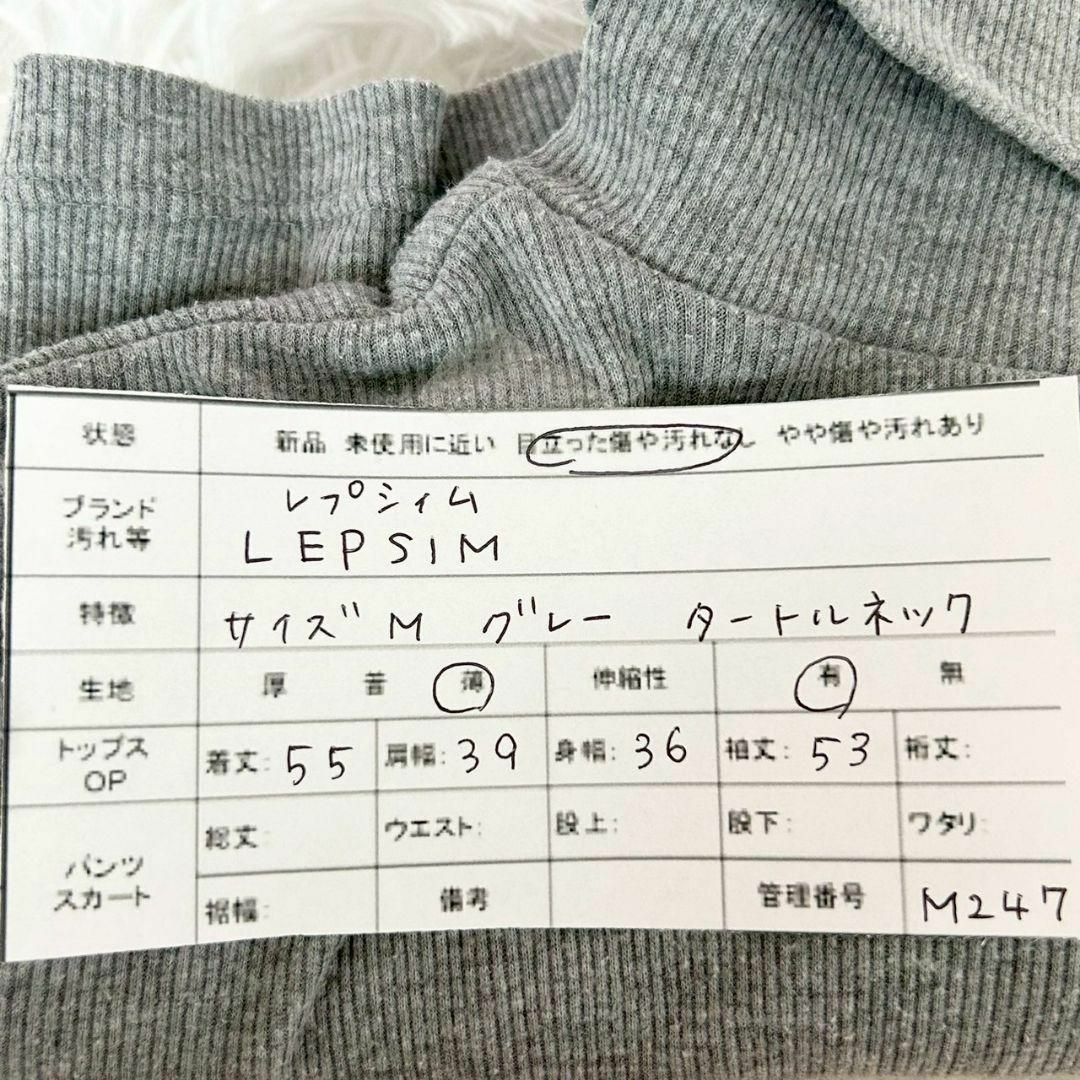 状態 新品 未使用に近い 目立った傷や汚れなし やや傷や汚れあり
ブランド 汚れ等 レプシィム
LEPSIM
特徴 サイズM グレー タートルネック
生地 厚 普 薄 伸縮性 有 無
トップス OP 着丈: 55 肩幅: 39 身幅: 36 袖丈: 53 裄丈:
パンツ スカート 総丈: ウエスト: 股上: 股下: ワタリ:
裾幅: 備考 管理番号 M247